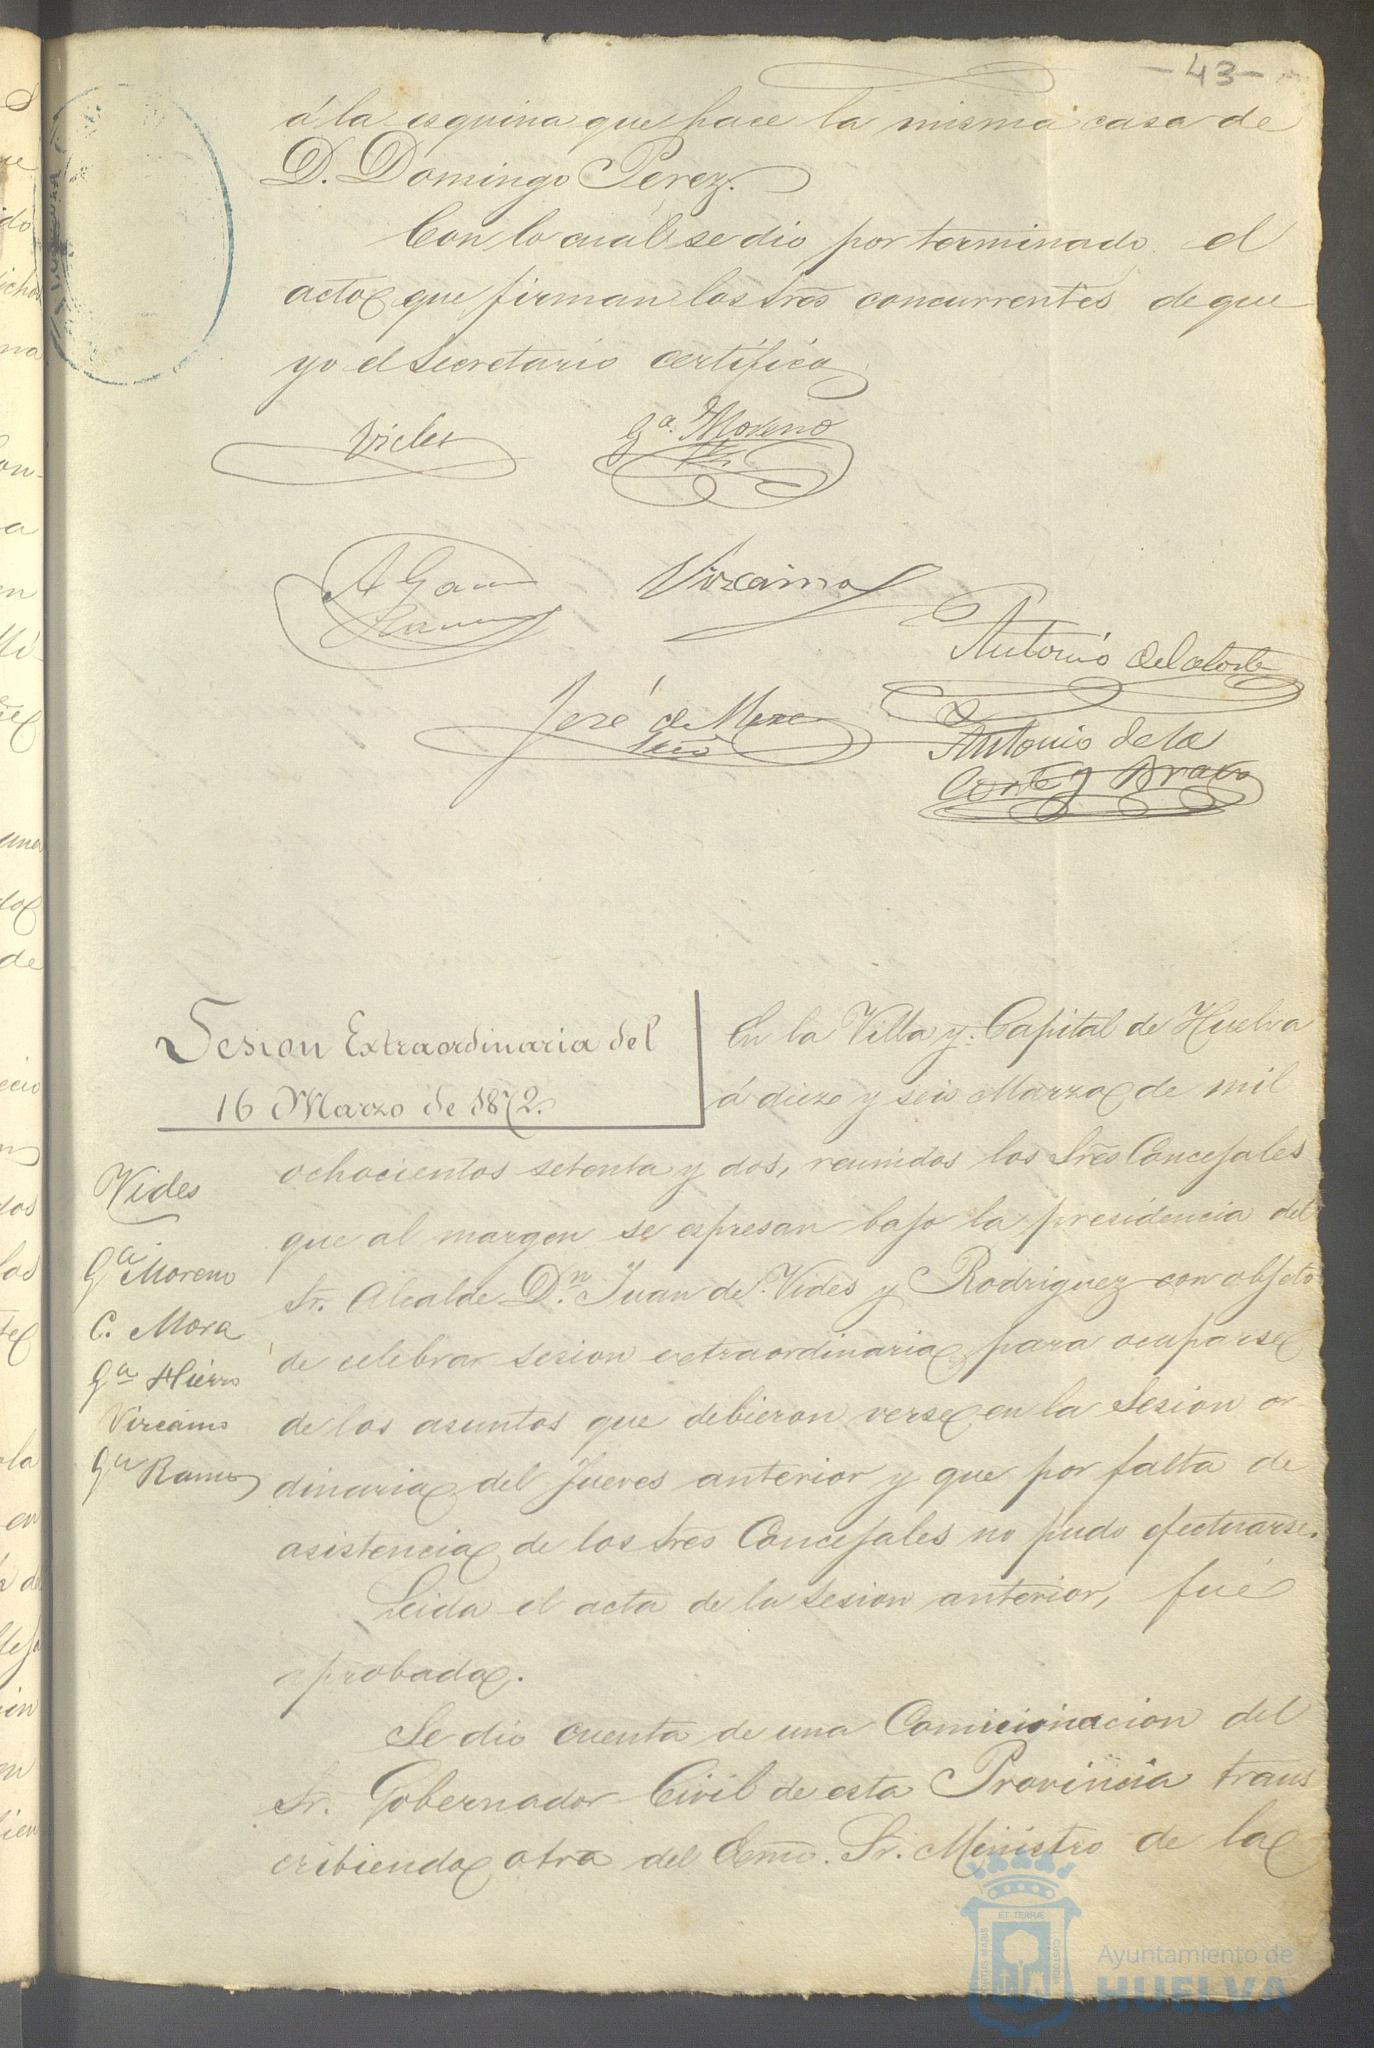 -43-
á la esquina que hace la misma casa de
D. Domingo Perez.
Con lo cual se dio por terminado el
acto que firman los Sres concurrentes de que
yo el Secretario certifico
Vides
Ga. Moreno
A Ga
Ramos
Vizcaino
Antonio de la Corte
José de Meze
Antonio de la
Corte y Bravo
Sesion Extraordinaria del
16 Marzo de 1872.
Vides
Ga Moreno
C. Mora
Ga Hierro
Vizcaino
Ga Ramos
En la Villa y Capital de Huelva
á diez y seis Marzo de mil
ochocientos setenta y dos, reunidos los Sres Concejales
que al margen se espresan bajo la presidencia del
Sr. Alcalde Dn. Juan de Vides y Rodriguez con objeto
de celebrar sesion extraordinaria para ocuparse
de los asuntos que debieron verse en la Sesion or-
dinaria del Jueves anterior y que por falta de
asistencia de los Sres Concejales no pudo efectuarse.
Leida el acta de la sesion anterior, fué
aprobada.
Se dio cuenta de una Comunicacion del
Sr. Gobernador Civil de esta Provincia trans
cribiendo otra del Exmo. Sr. Ministro de la
Ayuntamiento de
HUELVA